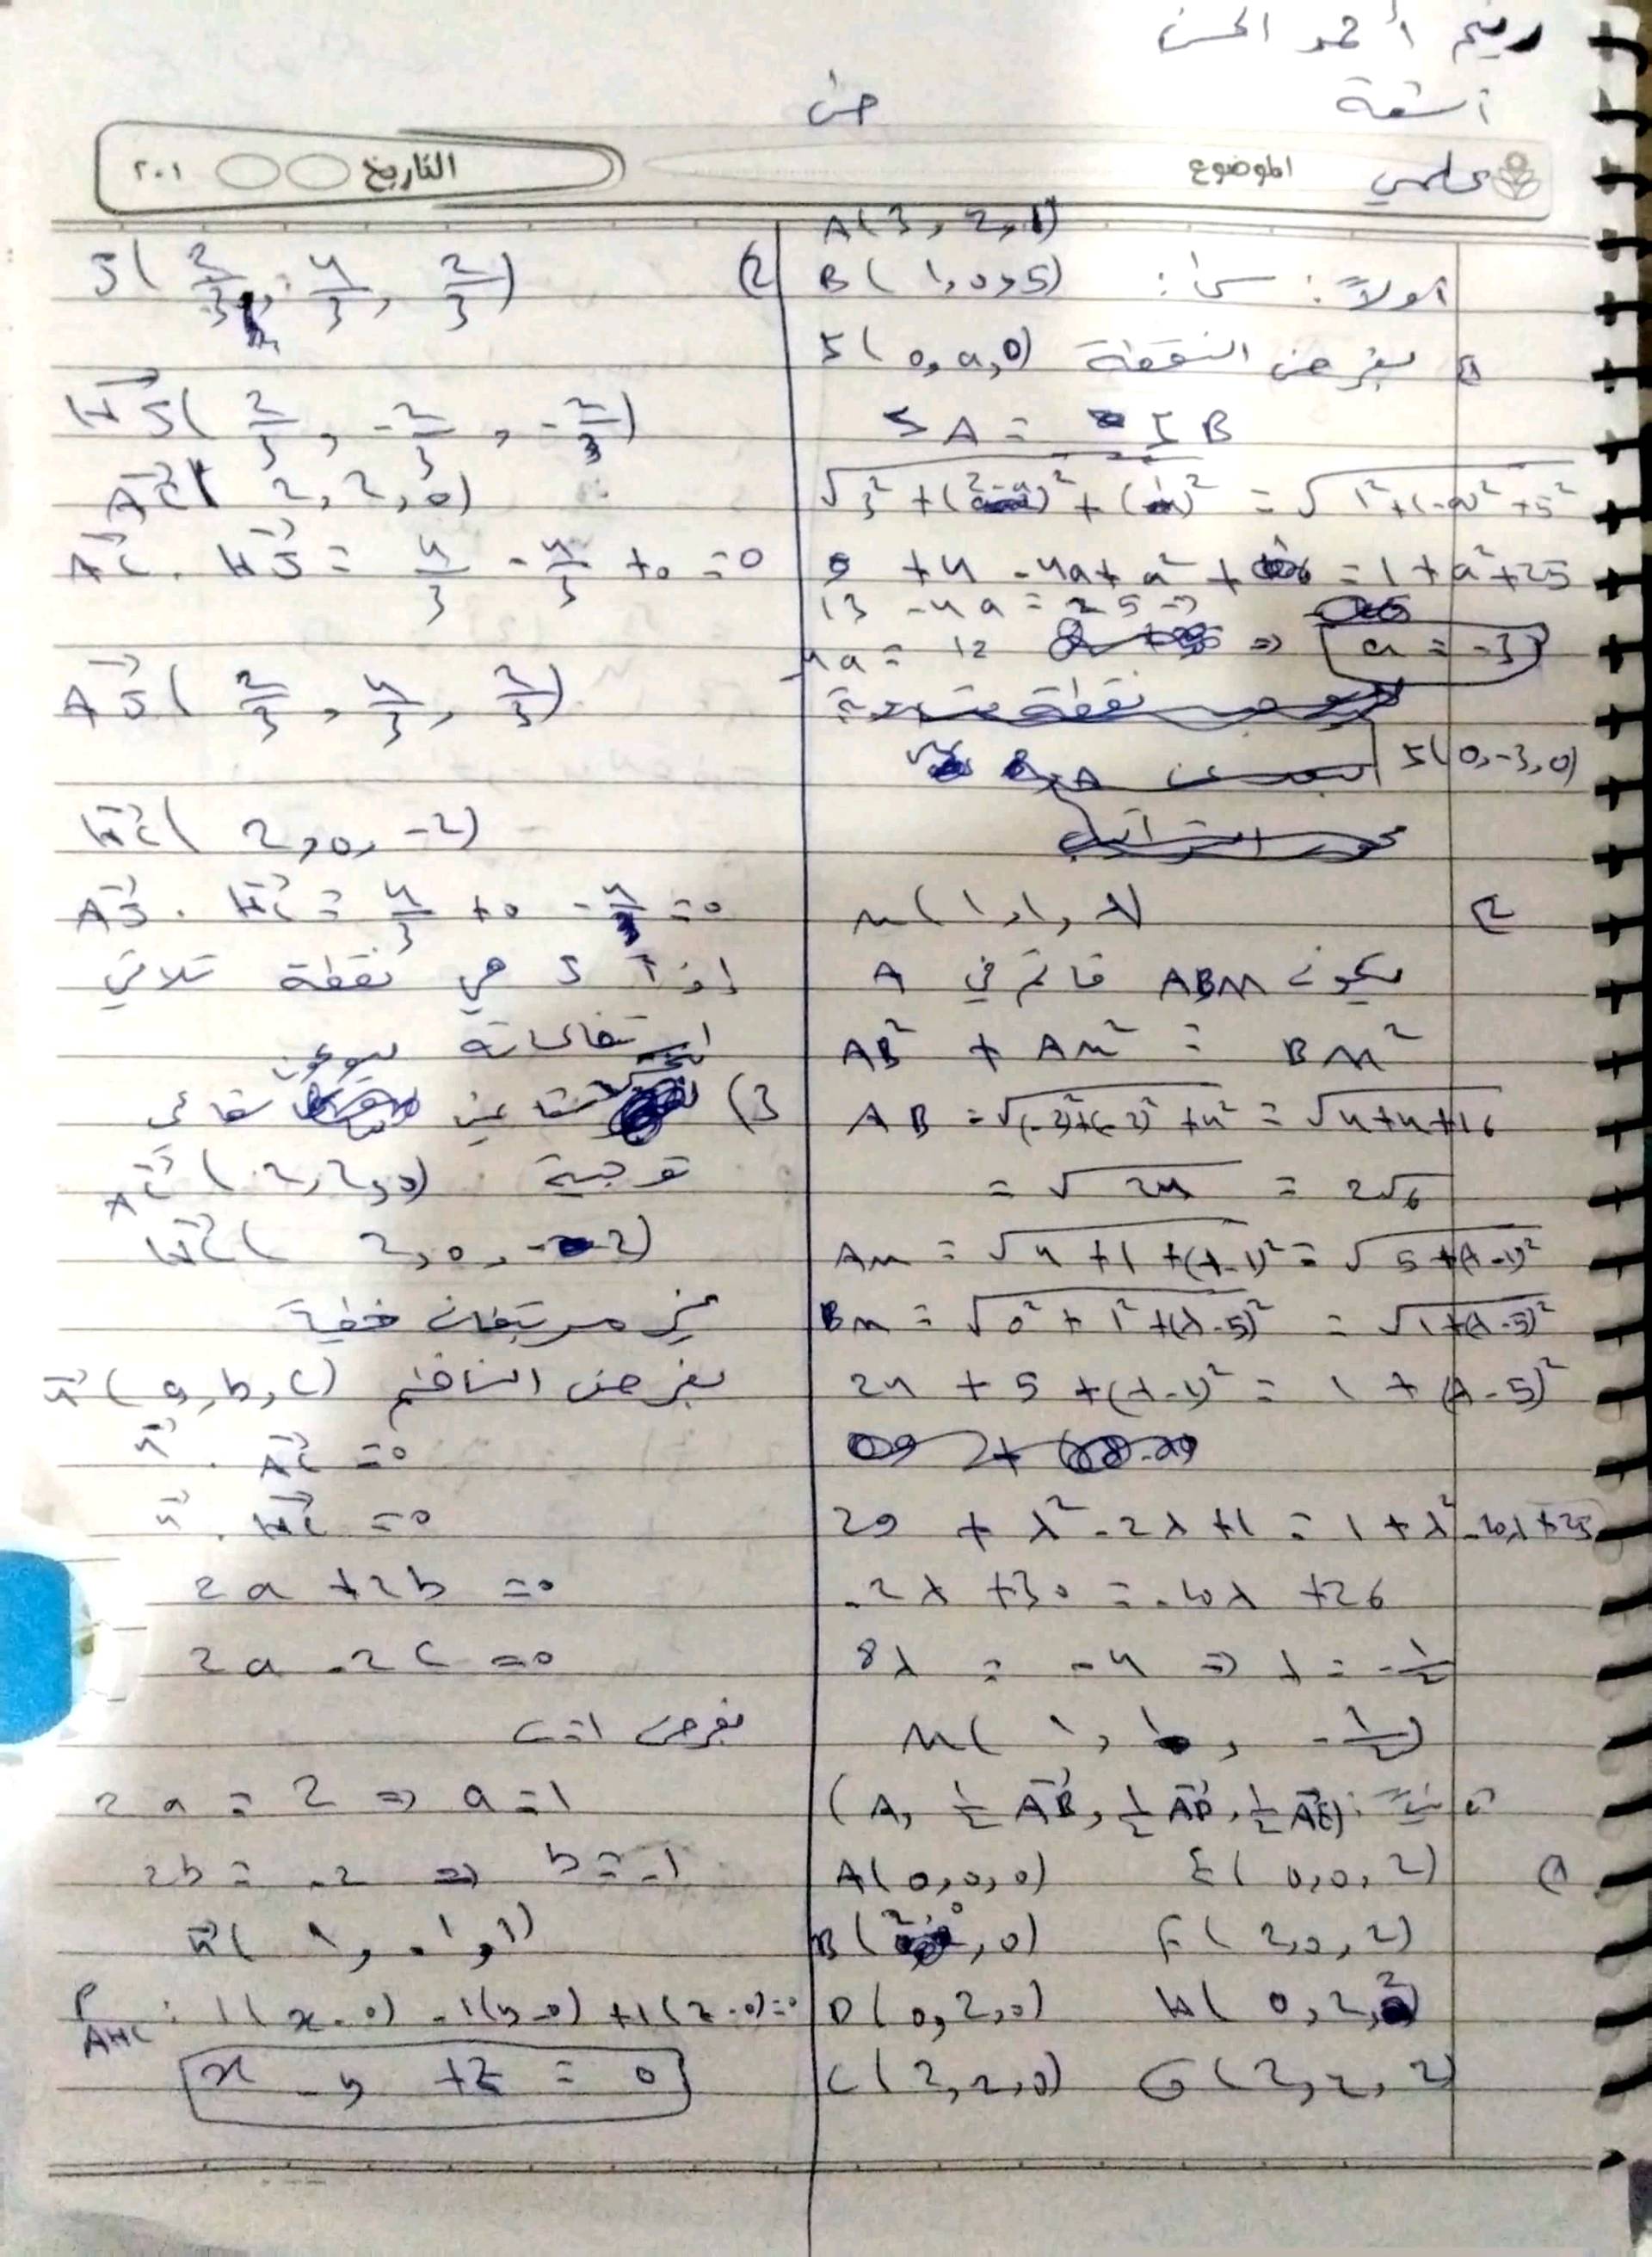 ريم أحمد الحسن
آنسة
حل
علمي
الموضوع
التاريخ ٢٠١
A(3, 2, 1)
أولاً: س1:
B(1, 0, 5)
1) بفرض النقطة S(0, a, 0)
SA = SB
√3² + (2-a)² + (1)² = √1² + (-a)² + 5²
9 + 4 - 4a + a² + 1 = 1 + a² + 25
13 - 4a = 25 ⇒
-4a = 12 ⇒ a = -3
S(0, -3, 0)
2) M(1, 1, λ)
يكون ABM قائم في A
AB² + AM² = BM²
AB = √(-2)² + (-2)² + 4² = √4 + 4 + 16
= √24 = 2√6
AM = √4 + 1 + (λ-1)² = √5 + (λ-1)²
BM = √0² + 1² + (λ-5)² = √1 + (λ-5)²
24 + 5 + (λ-1)² = 1 + (λ-5)²
29 + λ² - 2λ + 1 = 1 + λ² - 10λ + 25
-2λ + 30 = -10λ + 26
8λ = -4 ⇒ λ = -1/2
M(1, 1, -1/2)
ثانياً: (A, 1/2 AB→, 1/2 AD→, 1/2 AE→)
1) A(0, 0, 0) E(0, 0, 2)
B(2, 0, 0) F(2, 0, 2)
D(0, 2, 0) H(0, 2, 2)
C(2, 2, 0) G(2, 2, 2)
2) J(2/3, 4/3, 2/3)
HJ→(2/3, -2/3, -2/3)
AC→(2, 2, 0)
AC→ . HJ→ = 4/3 - 4/3 + 0 = 0
AJ→(2/3, 4/3, 2/3)
HC→(2, 0, -2)
AJ→ . HC→ = 4/3 + 0 - 4/3 = 0
إذاً J هي نقطة تلاقي
3) شعاعي
توجيه AC→(2, 2, 0)
HC→(2, 0, -2)
غير مرتبطان خطياً
بفرض الناظم n→(a, b, c)
n→ . AC→ = 0
n→ . HC→ = 0
2a + 2b = 0
2a - 2c = 0
بفرض c=1
2a = 2 ⇒ a = 1
2b = -2 ⇒ b = -1
n→(1, -1, 1)
P AHC : 1(x-0) - 1(y-0) + 1(z-0) = 0
x - y + z = 0